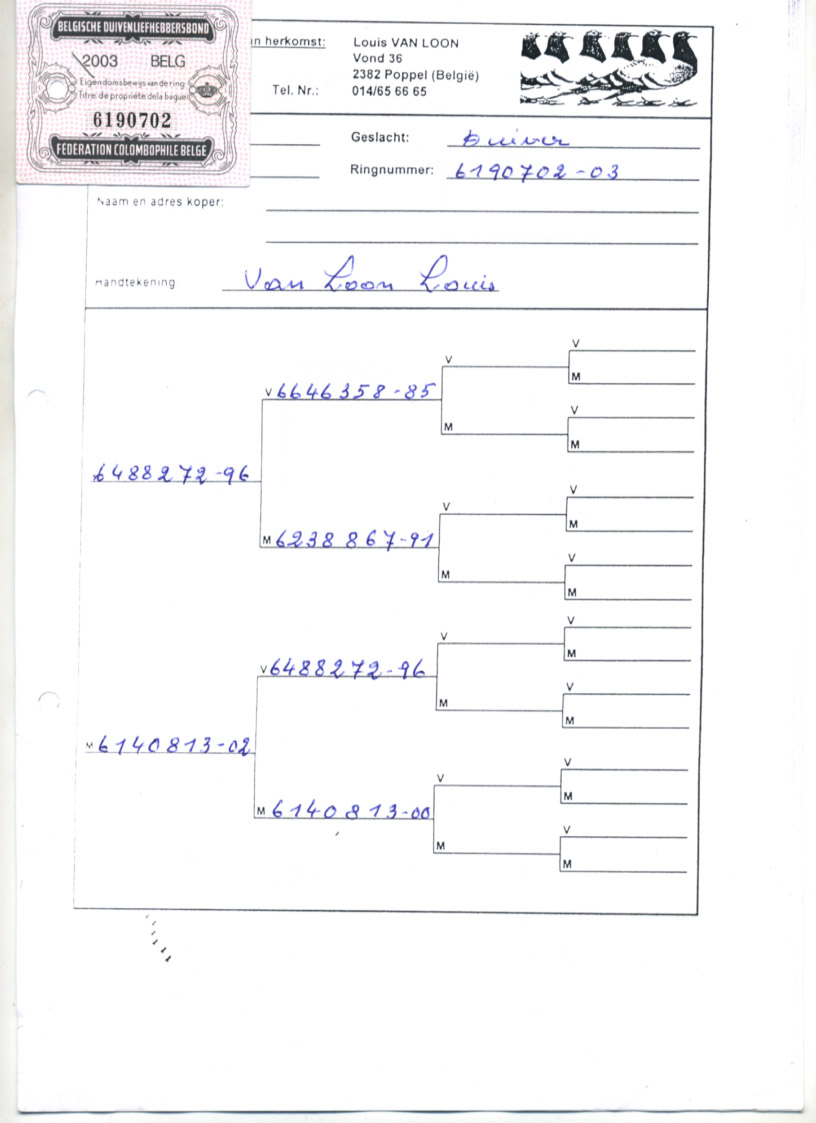 BELGISCHE DUIVENLIEFHEBBERSBOND
2003 BELG
Eigendomsbewijs van de ring
Titre de propriété de la bague
6190702
FEDERATION COLOMBOPHILE BELGE
n herkomst: Louis VAN LOON
Vond 36
2382 Poppel (België)
Tel. Nr.: 014/65 66 65
Geslacht: Duiver
Ringnummer: 6190702-03
Naam en adres koper:
Handtekening Van Loon Louis
V
V
M
V 6646358-85
V
M
M
6488272-96
V
V
M
M 6238867-91
V
M
M
V
V
M
V 6488272-96
V
M
M
M 6140813-02
V
V
M
M 6140813-00
V
M
M